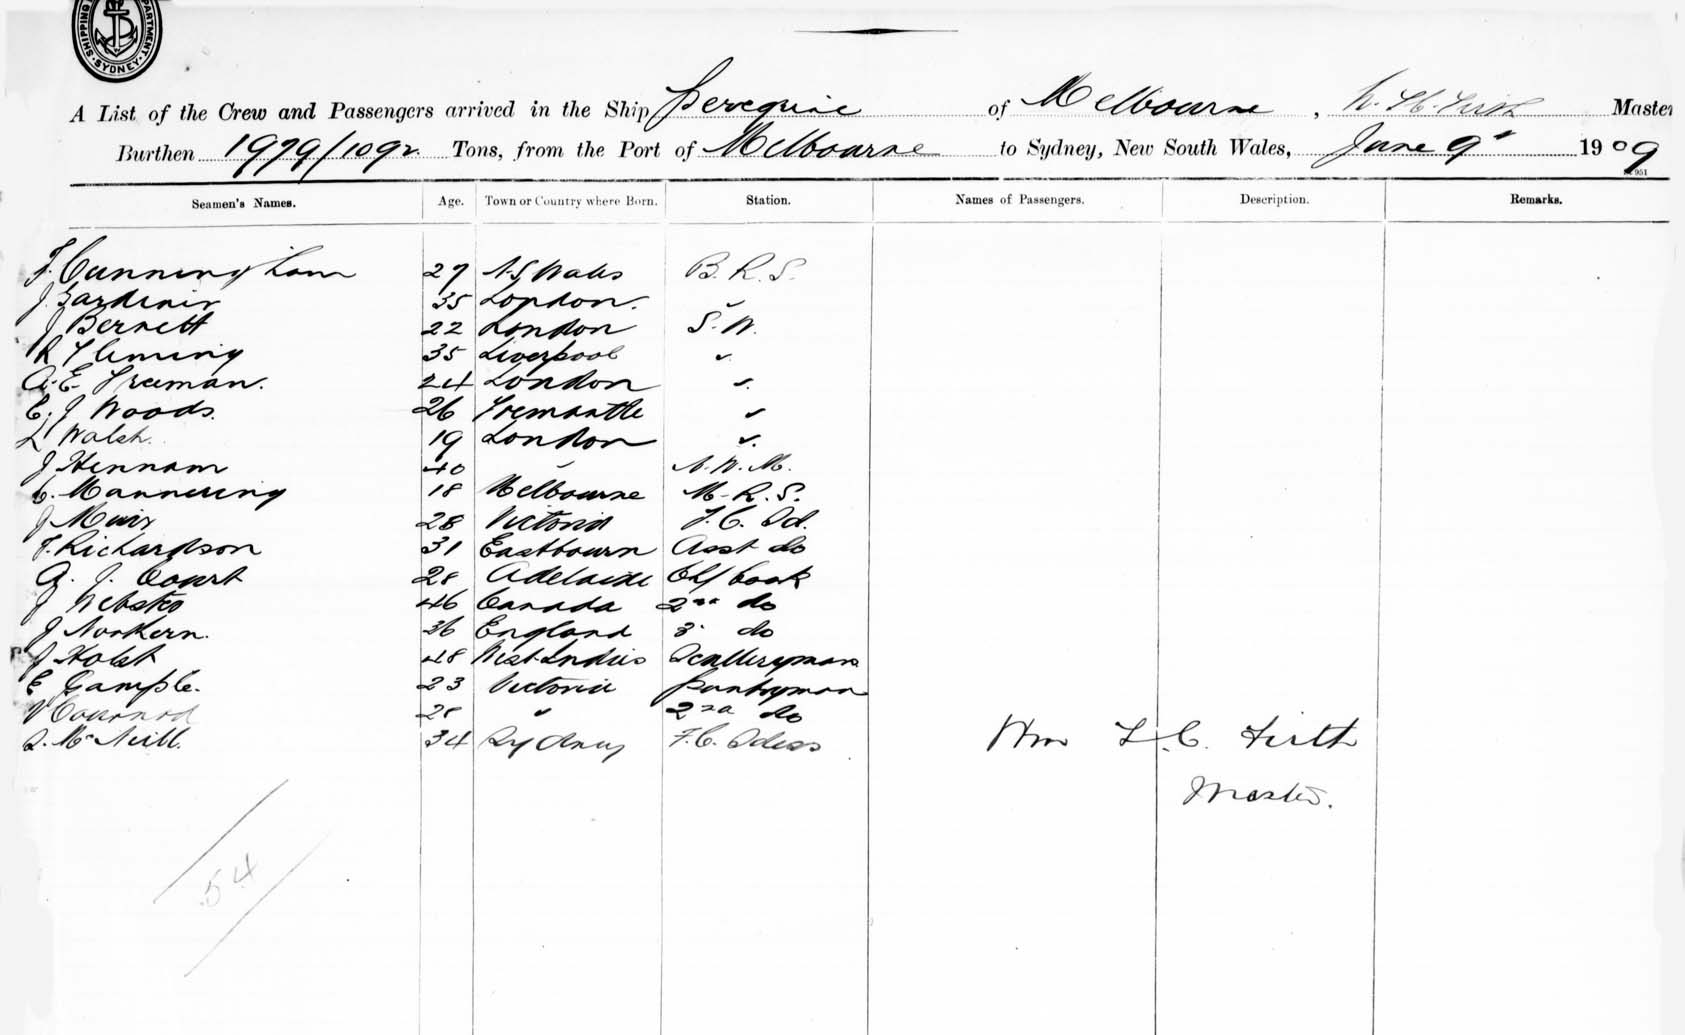 SHIPPING DEPARTMENT SYDNEY
A List of the Crew and Passengers arrived in the Ship Peregrine of Melbourne, W. H. Firth Master
Burthen 1979/1092 Tons, from the Port of Melbourne to Sydney, New South Wales, June 9 1909
Seamen's Names. Age. Town or Country where Born. Station. Names of Passengers. Description. Remarks.
F. Cunningham 27 N. S. Wales B. R. S.
J. Gardiner 35 London. "
J Bernett 22 London S. W.
R Fleming 35 Liverpool "
A. E. Freeman. 24 London "
E. J Woods. 26 Fremantle "
L Walsh. 19 London "
J Hennam 40 " N. W. M.
C. Mannering 18 Melbourne M. R. S.
J Muir 28 Victoria F. C. Sd.
F. Richardson 31 Eastbourn Asst do
G. J. Court 28 Adelaide Chf Cook
J Webster 46 Canada 2nd do
J Northern. 36 England 3 do
J Holst 48 West Indies Sculleryman
E Gample. 23 Victoria Pantryman
V 28 " 2nd do
McNeill. 34 Sydney F. C. Sdess
Wm L. C. Firth
Master.
54